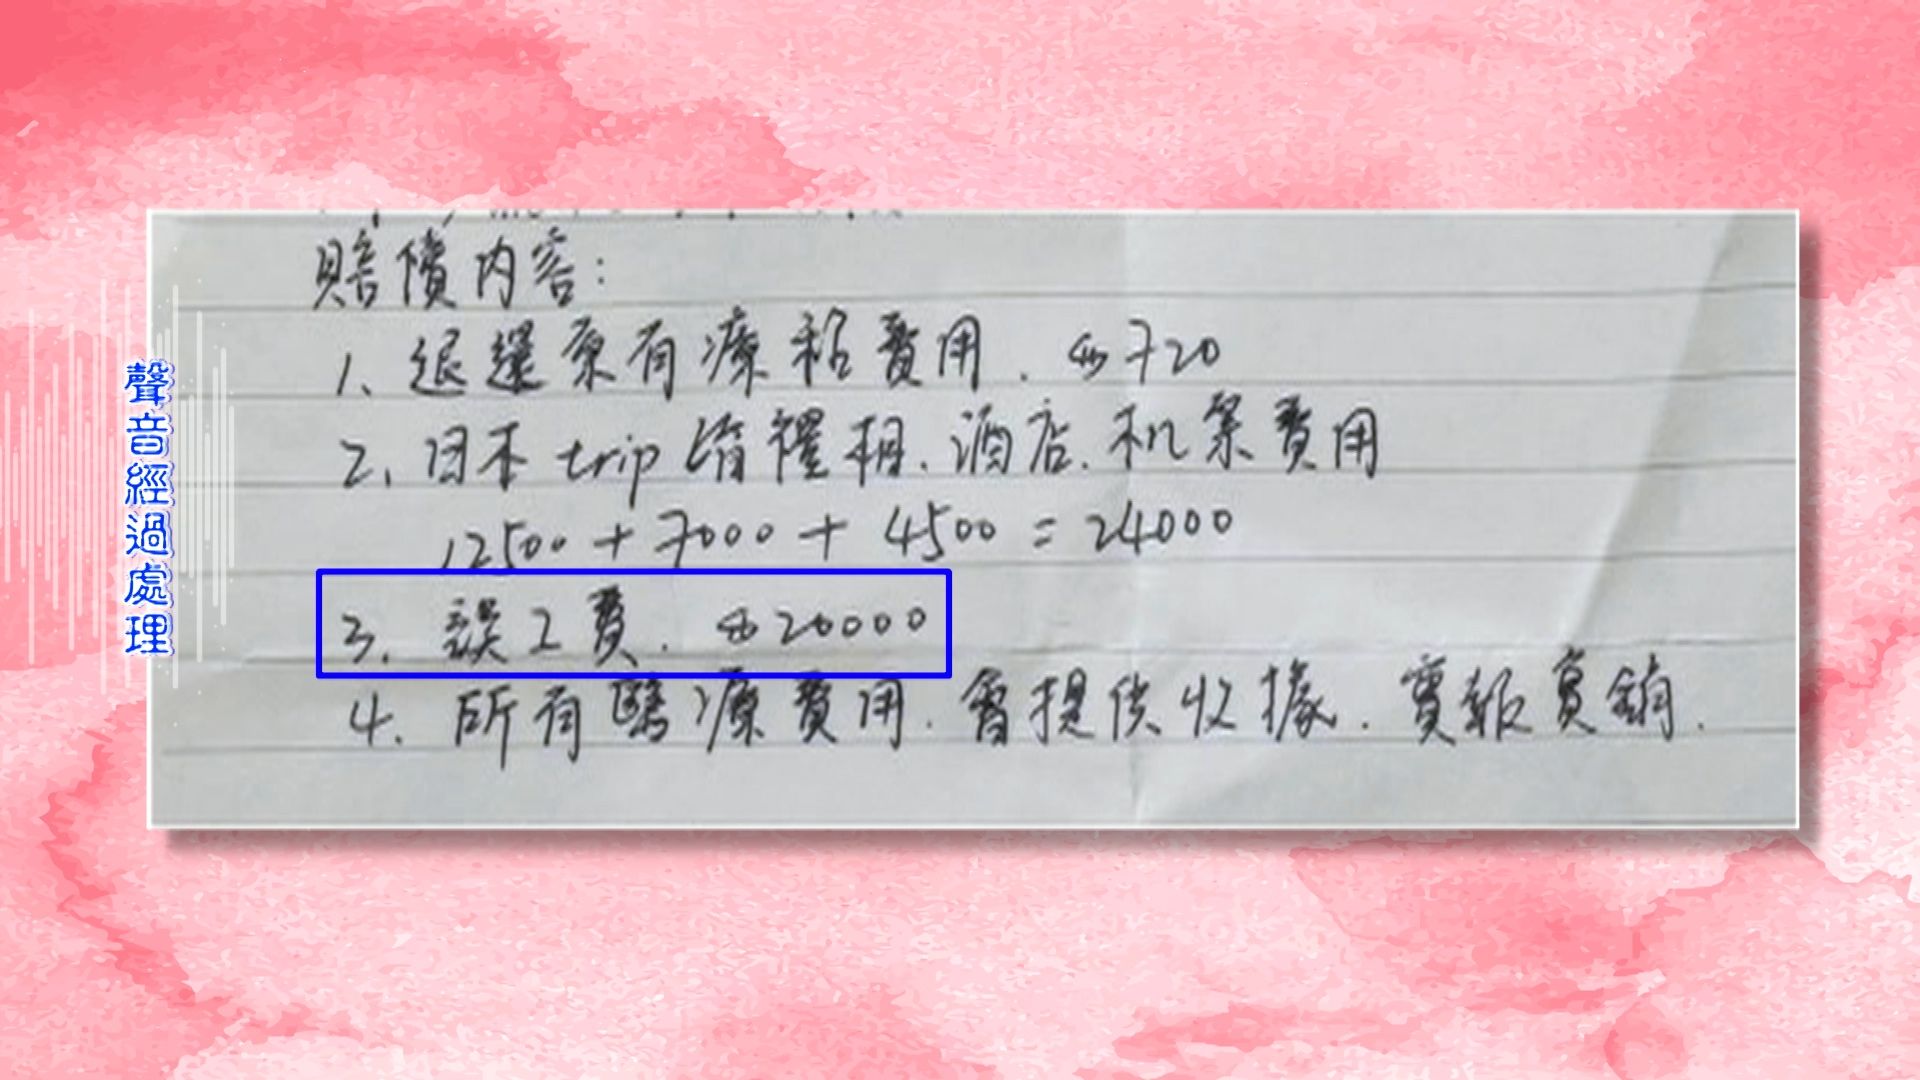 聲音經過處理
賠償內容:
1、退還原有療程費用. $720
2、日本trip 婚禮相.酒店.机票費用
12500+7000+4500=24000
3、誤工費. $20000
4.所有醫療費用.會提供收據.實報實銷.